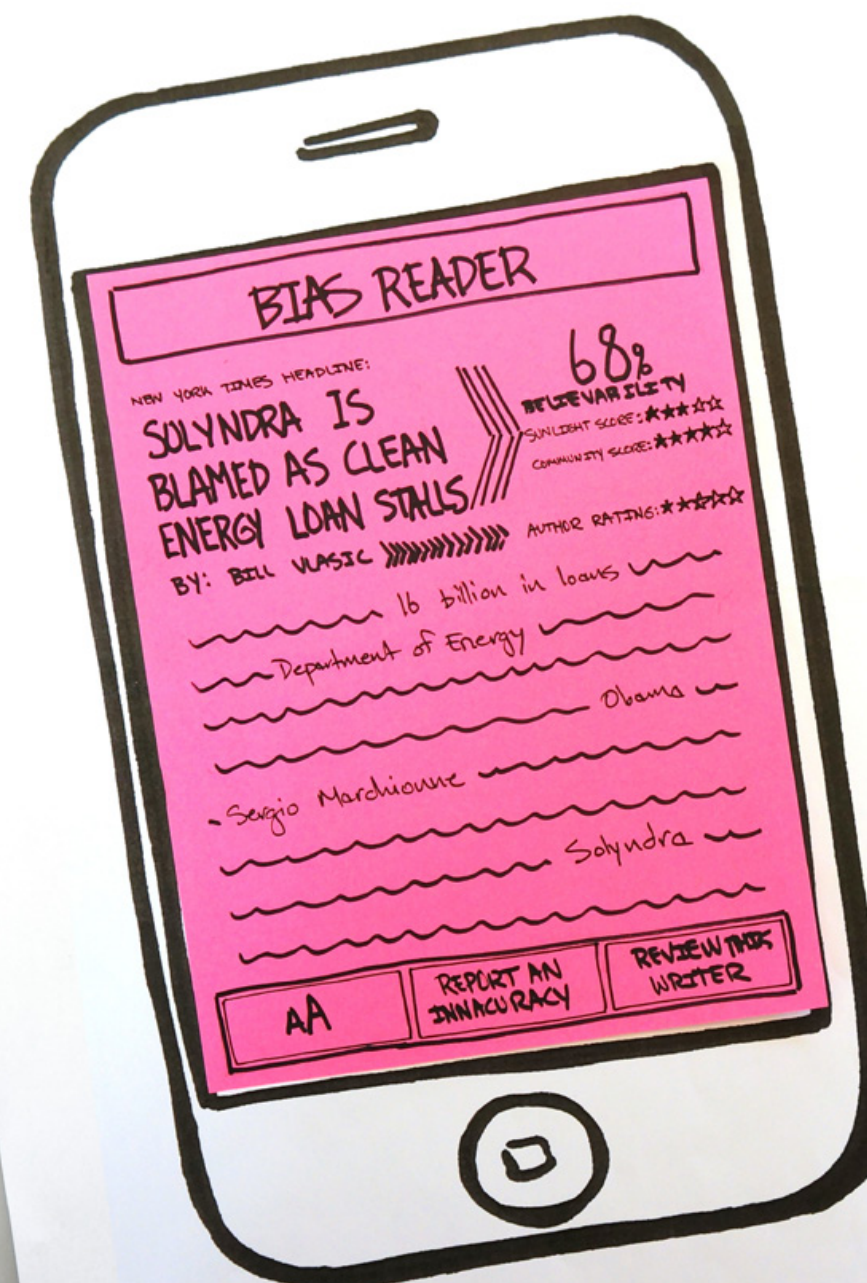 BIAS READER
NEW YORK TIMES HEADLINE:
SOLYNDRA IS
BLAMED AS CLEAN
ENERGY LOAN STALLS
BY: BILL VLASIC
68%
BELIEVABILITY
SUNLIGHT SCORE: ★★★☆☆
COMMUNITY SCORE: ★★★★☆
AUTHOR RATING: ★★☆☆☆
16 billion in loans
Department of Energy
Obama
Sergio Marchionne
Solyndra
AA
REPORT AN
INNACURACY
REVIEW THIS
WRITER